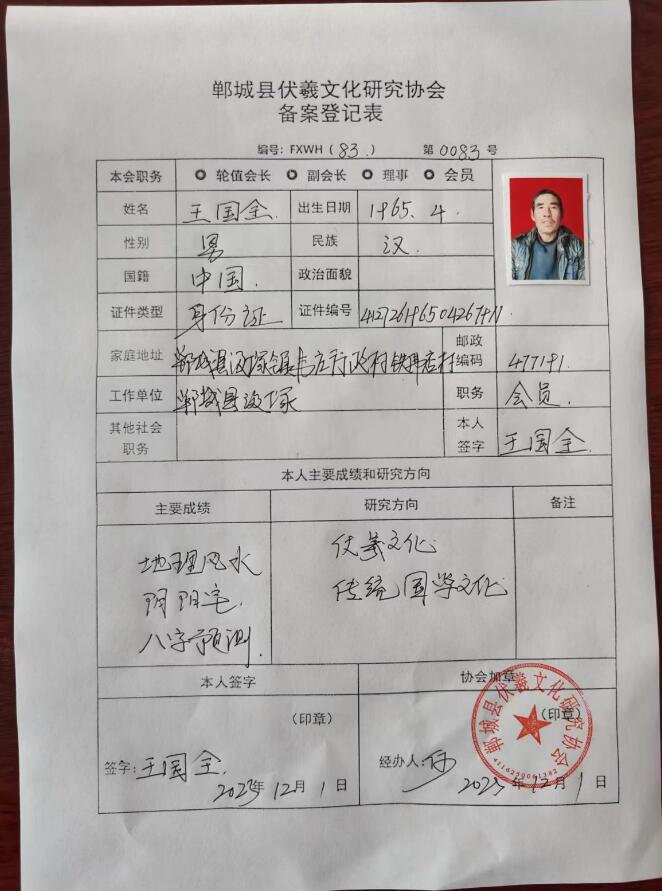 郸城县伏羲文化研究协会
备案登记表
编号: FXWH ( 83. ) 第 0083 号
本会职务 轮值会长 副会长 理事 会员
姓名 王国全. 出生日期 1965. 4.
性别 男 民族 汉.
国籍 中国. 政治面貌
证件类型 身份证 证件编号
家庭地址 郸城县汲塚镇 行政村铁 店村 邮政编码 477191.
工作单位 郸城县汲塚 职务 会员.
其他社会职务 本人签字 王国全.
本人主要成绩和研究方向
主要成绩 研究方向 备注
地理风水 伏羲文化
阴阳宅. 传统国学文化
八字预测.
本人签字 协会加章
(印章) (印章)
郸城县伏羲文化研究协会
签字: 王国全. 经办人:
2023年 12月 1日 2023年 12月 1日